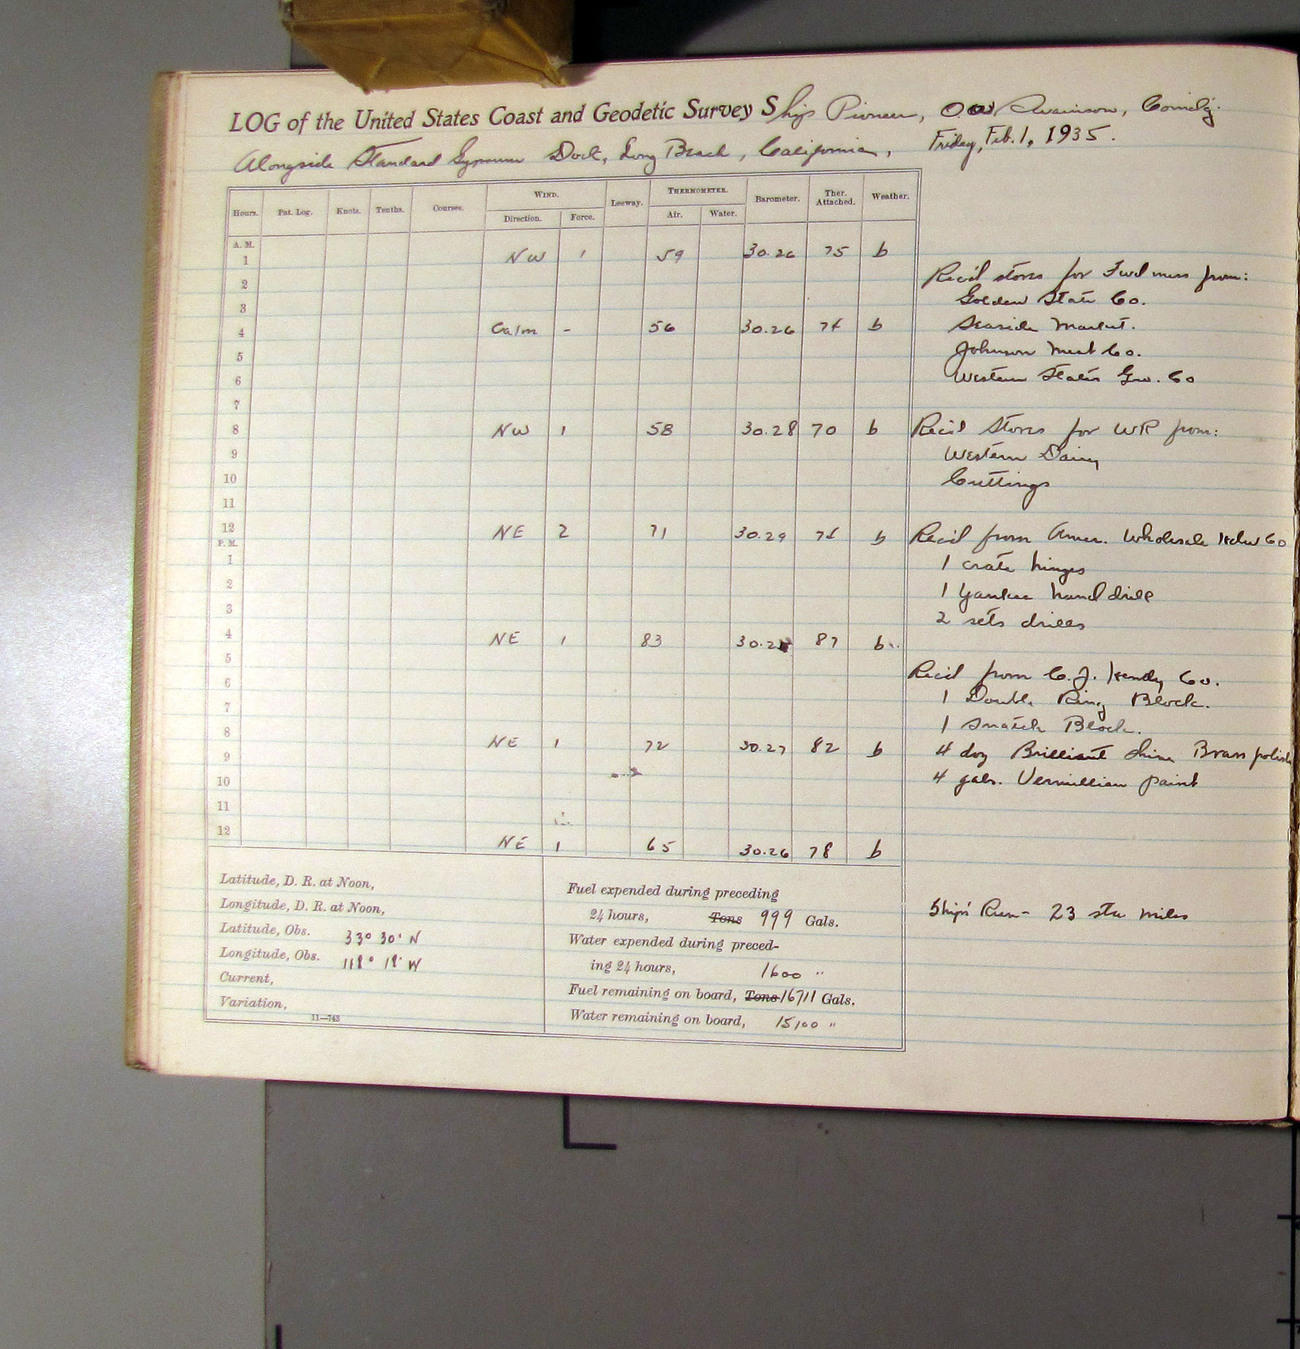 LOG of the United States Coast and Geodetic Survey Ship Pioneer, O.W. Swainson, Comd'g.
Alongside Standard Gypsum Dock, Long Beach, California, Friday, Feb. 1, 1935.
Hours. Pat. Log. Knots. Tenths. Courses. WIND. Leeway. THERMOMETER. Barometer. Ther. Attached. Weather.
Direction. Force. Air. Water.
A. M.
1 NW 1 59 30.26 75 b
2 Rec'd stores for Fwd mess from:
3 Golden State Co.
4 Calm - 56 30.26 74 b Seaside Market.
5 Johnson Meat Co.
6 Western States Gro. Co
7
8 NW 1 58 30.28 70 b Rec'd Stores for WR from:
9 Western Dairy
10 Cuttings
11
12 NE 2 71 30.29 76 b Rec'd from Amer. Wholesale Hdw Co
P. M.
1 1 crate hinges
2 1 Yankee hand drill
3 2 sets drills
4 NE 1 83 87 b
5
6 Rec'd from C.J. Hendry Co.
7 1 Double Ring Block.
8 1 Snatch Block.
9 NE 1 72 30.27 82 b 4 doz Brilliant Shine Brass polish
10 4 gals. Vermillian paint
11
12 NE 1 65 30.26 78 b
Latitude, D. R. at Noon,
Longitude, D. R. at Noon,
Latitude, Obs. 33° 30' N
Longitude, Obs. 118° 18' W
Current,
Variation,
11—743
Fuel expended during preceding
24 hours, Tons 999 Gals.
Water expended during preced-
ing 24 hours, 1600 "
Fuel remaining on board, Tons 16711 Gals.
Water remaining on board, 15100 "
Ships' Run - 23 sta miles